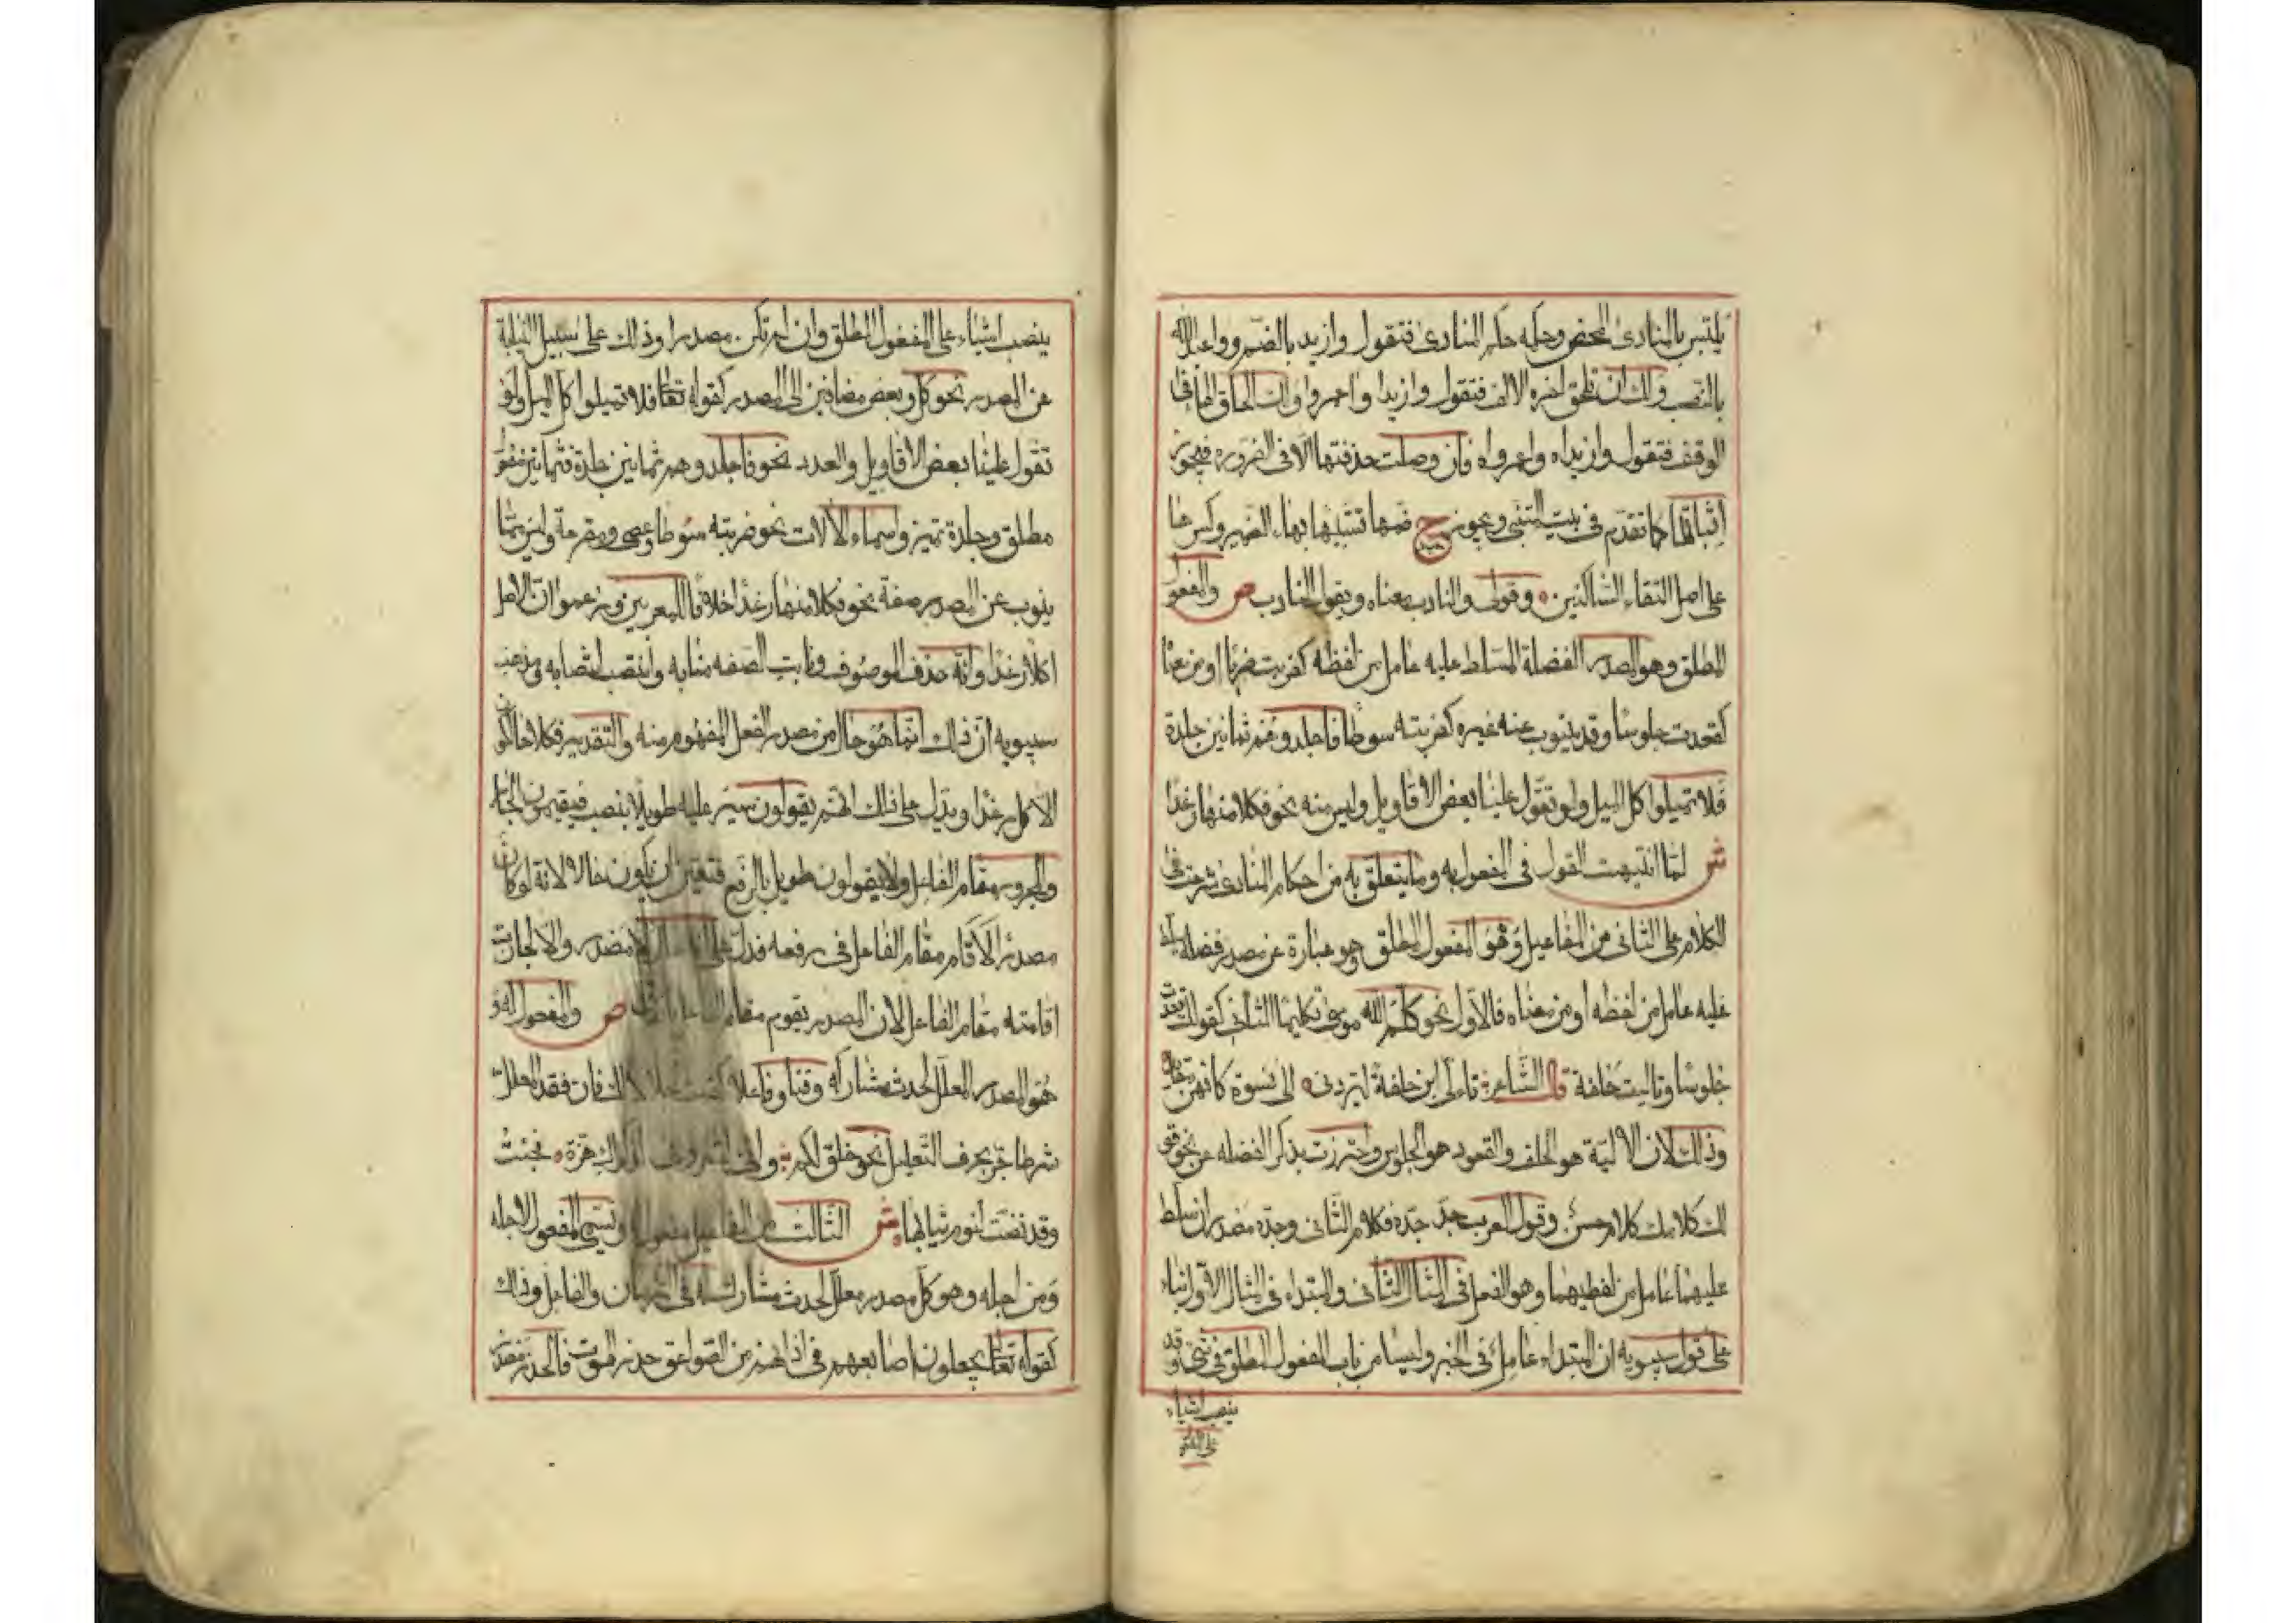 يلتبس بالمنادى المحض وحكمه حكم المنادى فتقول وازيد بالضم وواعبد الله
بالنصب ولك ان تلحق اخره الالف فتقول وازيدا واعمروا ولك الحاق الهاء في
الوقف فتقول وازيداه واعمرواه فان وصلت حذفتها الا في الضروره فيجوز
اثباتها كما تقدم في بيت المتنبي ويجوز ح ضمها تشبيها بهاء الضمير وكسرها
على اصل التقاء الساكنين وقولي والنادب معناه ويقول النادب ص والمفعول
المطلق وهو المصدر الفضلة المسلط عليه عامل من لفظه كضربت ضربا او من معناه
كقعدت جلوسا وقد ينوب عنه غيره كضربته سوطا فاجلدوهم ثمانين جلدة
فلا تميلوا كل الميل ولو تقول علينا بعض الاقاويل وليس منه نحو فكلا منها رغدا
ش لما انتهيت القول في المفعول به وما يتعلق به من احكام المنادى شرعت في
الكلام على الثاني من المفاعيل وهو المفعول المطلق وهو عبارة عن مصدر فضلة
عليه عامل من لفظه او من معناه فالاول نحو كلم الله موسى تكليما الثاني كقولك قعدت
جلوسا وتاليت حلفة قال الشاعر تالى ابن حلفة ليردني الى نسوة كانهن
وذلك لان الالية هو الحلف والقعود هو الجلوس واحترزت بذكر الفضله عن نحو قو
لك كلامك كلام حسن وقول العرب جد جده فكلام الثاني وجده مصدران سلط
عليهما عامل من لفظيهما وهو الفعل في المثال الثاني والمبتداء في المثال الاول بناء
على قول سيبويه ان المبتداء عامل في الخبر وليسا من باب المفعول المطلق في شئ وقد
ينصب اشياء
على المفعو
ينصب اشياء على المفعول المطلق وان لم تكن مصدرا وذلك على سبيل النيابة
عن المصدر نحو كل وبعض مضافين الى المصدر كقوله تعالى فلا تميلوا كل الميل ولو
تقول علينا بعض الاقاويل والعدد نحو فاجلدوهم ثمانين جلدة فثمانين مفعول
مطلق وجلدة تمييز واسماء الالات نحو ضربته سوطا وعصى ومقرعة وليس مما
ينوب عن المصدر صفة نحو فكلا منها رغدا خلافا للمعربين وزعموا ان الاصل
اكلا رغدا وانه حذف الموصوف ونابت الصفه منابه وانتصب انتصابه ومذهب
سيبويه ان ذلك انما هو حال من مصدر الفعل المفهوم منه والتقدير فكلا حال كون
الاكل رغدا ويدل على ذلك انهم يقولون سير عليه طويلا بنصب فيقيمون الجار
والمجرور مقام الفاعل ولا يقولون طويل بالرفع فتعين ان يكون حالا لانه لو كان
مصدرا لاقام مقام الفاعل في رفعه فدل على انه حال لا مصدر والا لجازت
اقامته مقام الفاعل لان المصدر يقوم مقام الفاعل ص والمفعول له و
هو المصدر المعلل لحدث مشاركه وقتا وفاعلا كقمت اجلالا لك فان فقد المعلل
شرطا جر بحرف التعليل نحو خلق لكم واني لتعروني لذكراك هزة فجئت
وقد نضت لنوم ثيابها ش الثالث من المفاعيل مفعول له ويسمى المفعول لاجله
ومن اجله وهو كل مصدر معلل لحدث مشارك له في الزمان والفاعل وذلك
كقوله تعالى يجعلون اصابعهم في اذانهم من الصواعق حذر الموت فالحذر مصدر